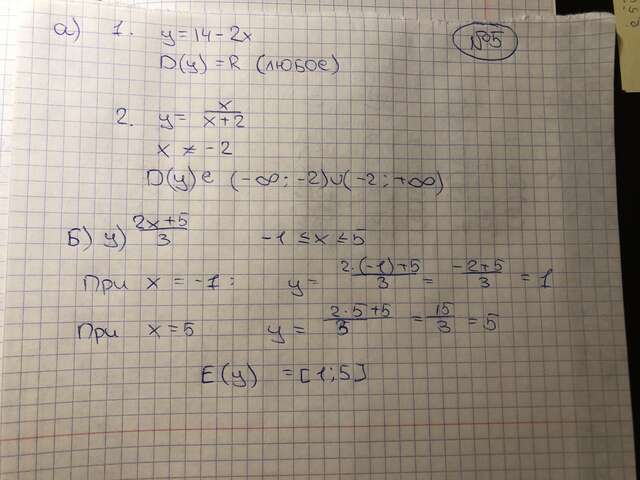 а) 1. y = 14 - 2x
№5
D(y) = R (любое)
2. y = x/(x+2)
x ≠ -2
D(y) є (-∞; -2)∪(-2; +∞)
Б) y) (2x+5)/3 -1 ≤ x ≤ 5
При x = -1: y = (2·(-1)+5)/3 = (-2+5)/3 = 1
При x = 5 y = (2·5+5)/3 = 15/3 = 5
E(y) = [1; 5]